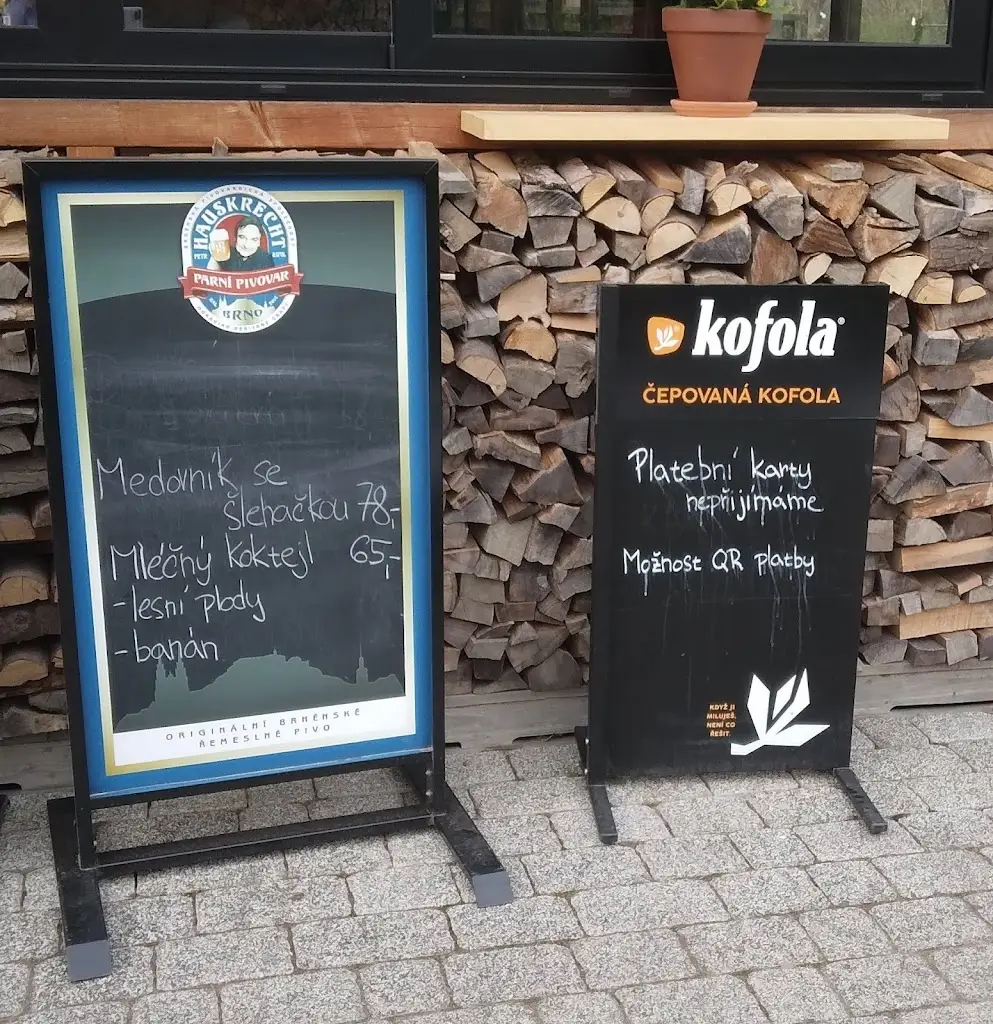 HAUSKRECHT
PARNÍ PIVOVAR
BRNO
Medovník se
šlehačkou 78,-
Mléčný koktejl 65,-
-lesní plody
-banán
ORIGINÁLNÍ BRNĚNSKÉ
ŘEMESLNÉ PIVO
kofola®
ČEPOVANÁ KOFOLA
Platební karty
nepřijímáme
Možnost QR platby
KDYŽ JI
MILUJEŠ,
NENÍ CO
ŘEŠIT.